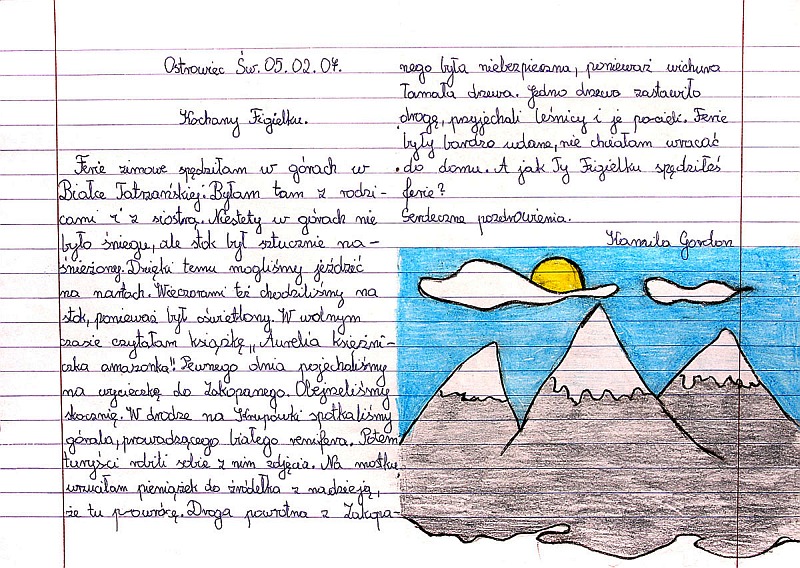 Ostrowiec Św. 05.02.07.
Kochany Figielku.
Ferie zimowe spędziłam w górach w
Białce Tatrzańskiej. Byłam tam z rodzi-
cami i z siostrą. Niestety w górach nie
było śniegu, ale stok był sztucznie na-
śnieżony. Dzięki temu mogliśmy jeździć
na nartach. Wieczorami też chodziliśmy na
stok, ponieważ był oświetlony. W wolnym
czasie czytałam książkę „Aurelia księżni-
czka amazonka". Pewnego dnia pojechaliśmy
na wycieczkę do Zakopanego. Obejrzeliśmy
skocznię. W drodze na Krupówki spotkaliśmy
górala, prowadzącego białego renifera. Potem
turyści robili sobie z nim zdjęcia. Na mostku
wrzuciłam pieniążek do źródełka z nadzieją,
że tu powrócę. Droga powrotna z Zakopa-
nego była niebezpieczna, ponieważ wichura
łamała drzewa. Jedno drzewo zastawiło
drogę, przyjechali leśnicy i je pocięli. Ferie
były bardzo udane, nie chciałam wracać
do domu. A jak Ty Figielku spędziłeś
ferie?
Serdeczne pozdrowienia.
Kamila Gordon